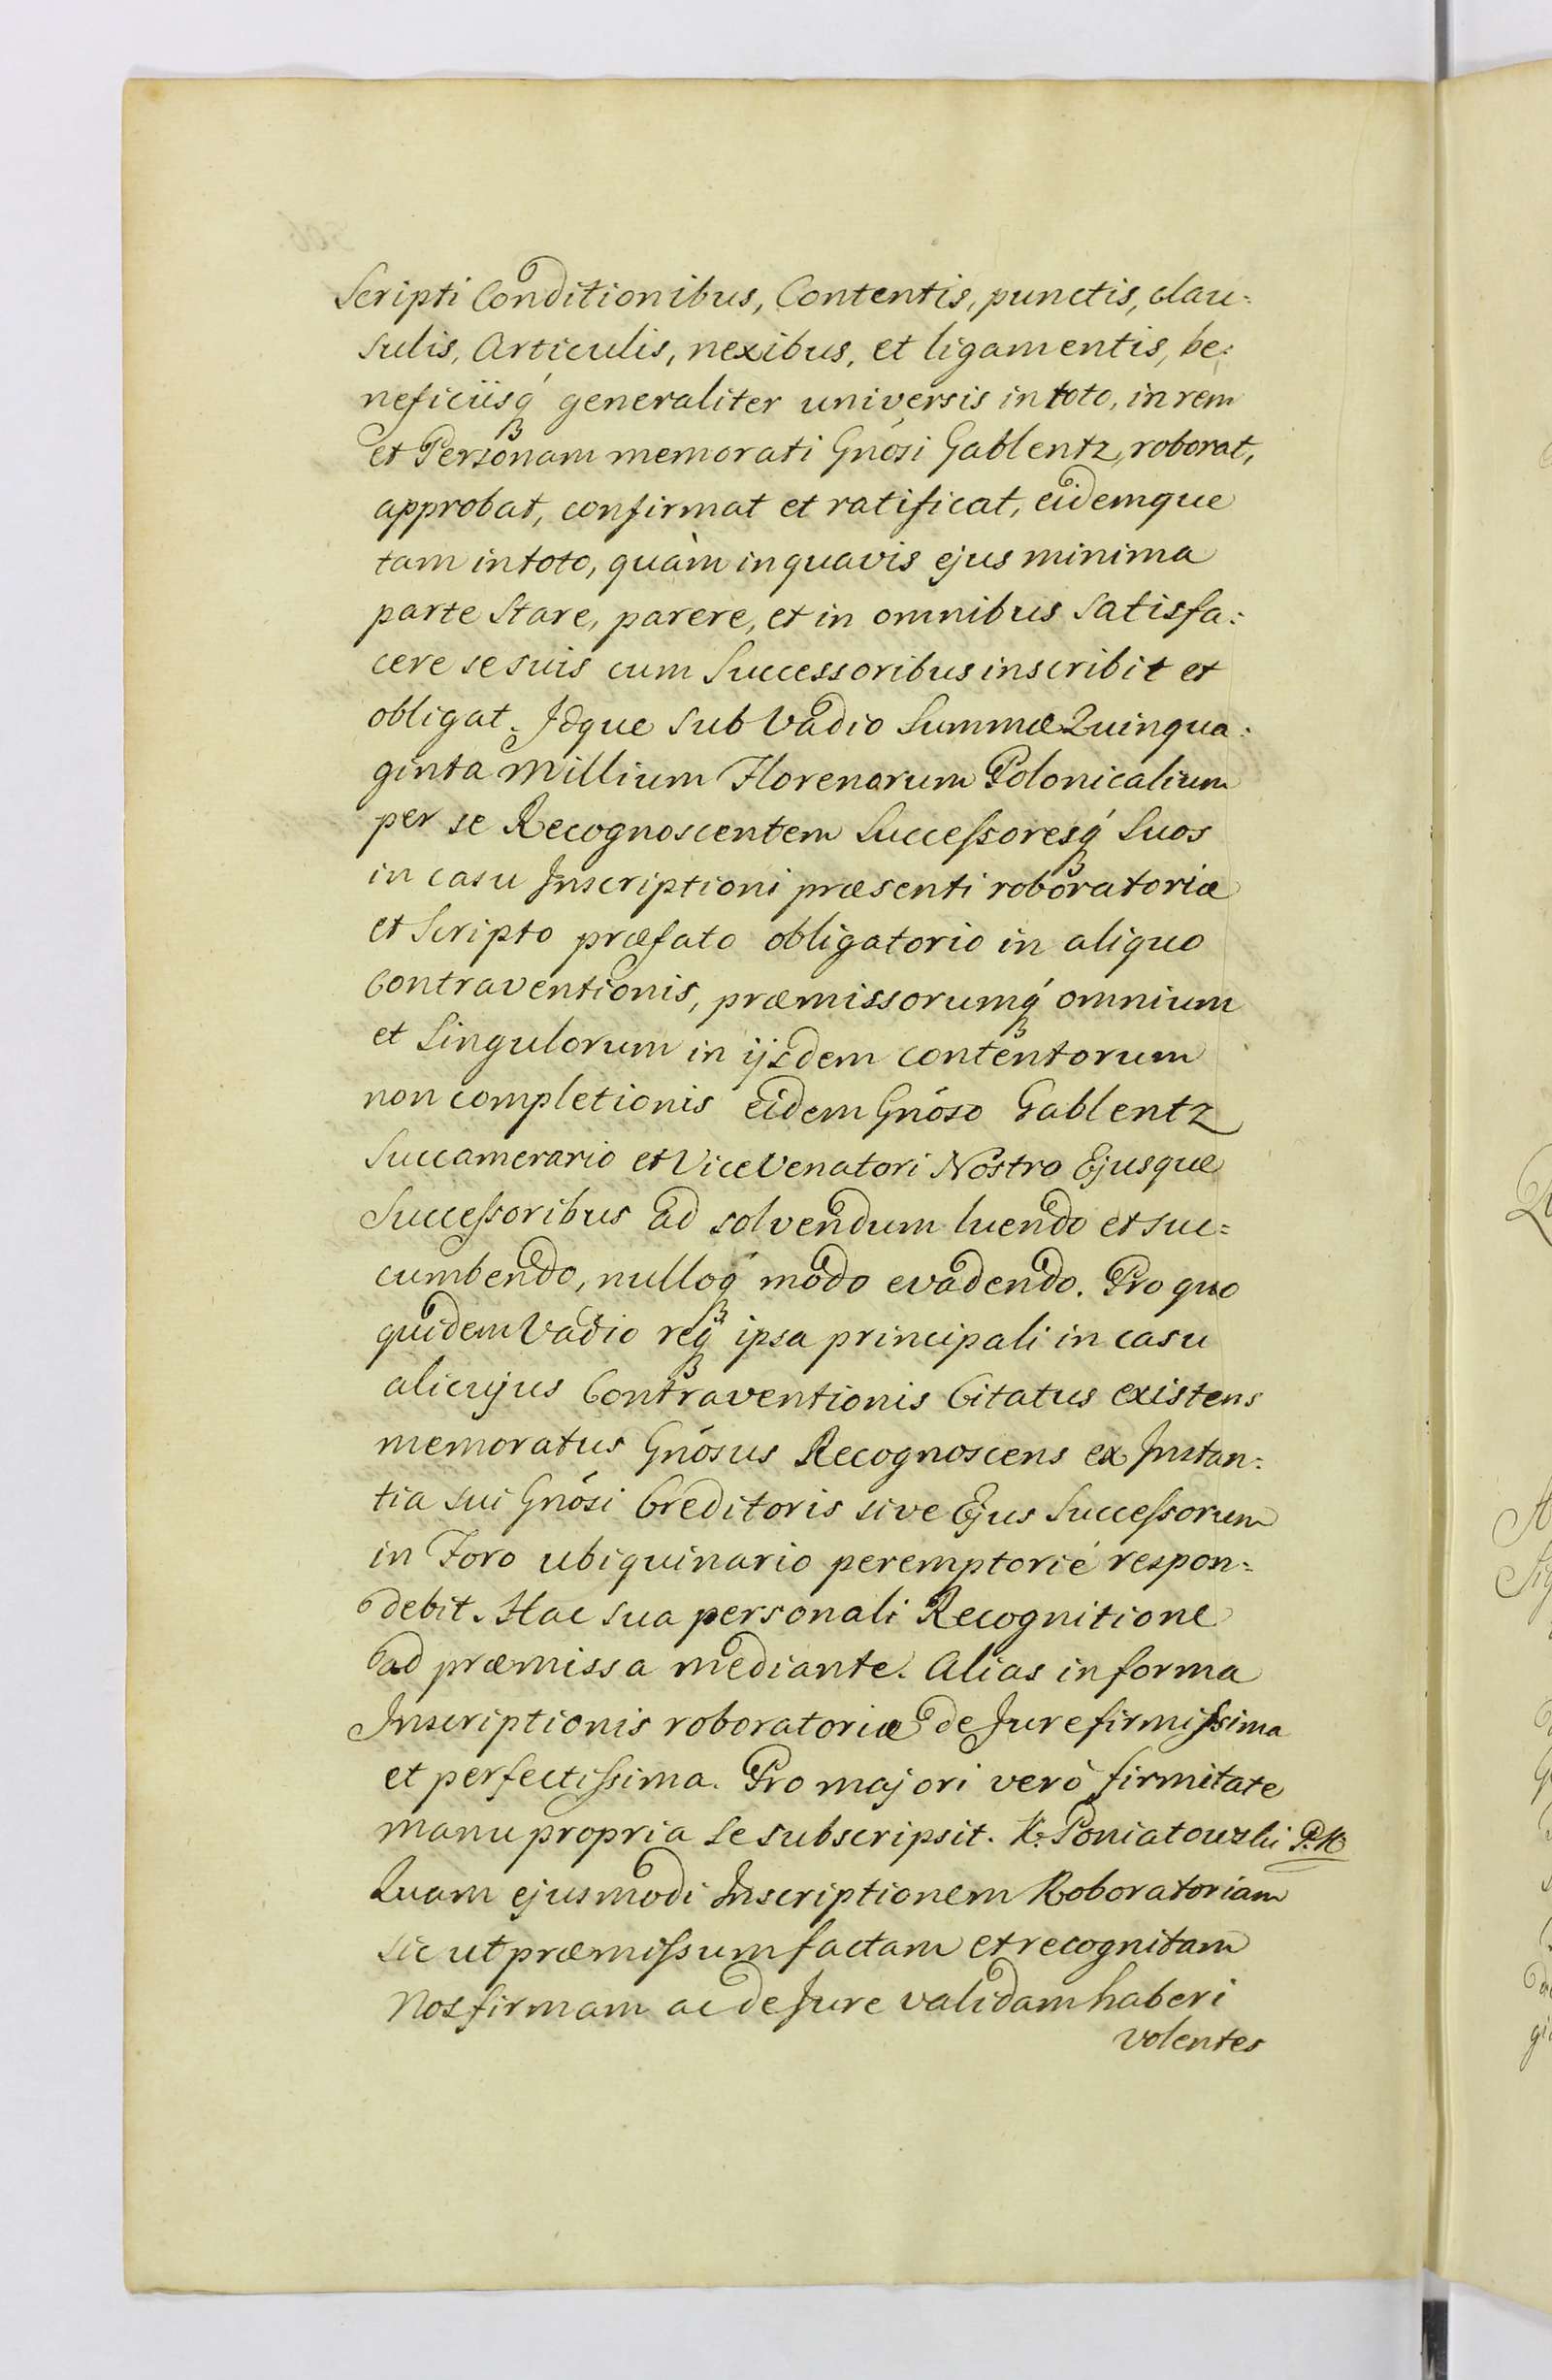 Scripti Conditionibus, Contentis, punctis, clau:
sulis, Articulis, nexibus, et ligamentis, be:
neficiisq́ generaliter universis in toto, in rem
et Personam memorati Gnósi Gablentz, roborat,
approbat, confirmat et ratificat, eidemque
tam in toto, quàm in quavis ejus minima
parte Stare, parere, et in omnibus Satisfa:
cere se suis cum Successoribus inscribit et
obligat. Idque Sub Vadio Summæ Quinqua:
ginta Millium Florenorum Polonicalium
per se Recognoscentem Successoresq́ Suos
in casu Inscriptioni præsenti roboratoriæ
et Scripto præfato obligatorio in aliquo
Contraventionis, præmissorumq́ omnium
et Singulorum in ijsdem contentorum
non completionis eidem Gnóso Gablentz
Succamerario et Vice Venatori Nostro Ejusque
Successoribus ad solvendum luendo et suc=
cumbendo, nulloq́ modo evadendo. Pro quo
quidem Vadio req́ ipsa principali in casu
alicujus Contraventionis Citatus existens
memoratus Gnósus Recognoscens ex Instan:
tia sui Gnósi Creditoris sive Ejus Successorum
in Foro ubiquinario peremptorié respon:
debit. Hac sua personali Recognitione
ad præmissa mediante. Alias in forma
Inscriptionis roboratoriæ de Jure firmissima
et perfectissima. Pro majori verò firmitate
manu propria se subscripsit. K. Poniatowski P.K
Quam ejusmodi Inscriptionem Roboratoriam
sic ut præmissum factam et recognitam
Nos firmam ac de Jure validam haberi
volentes